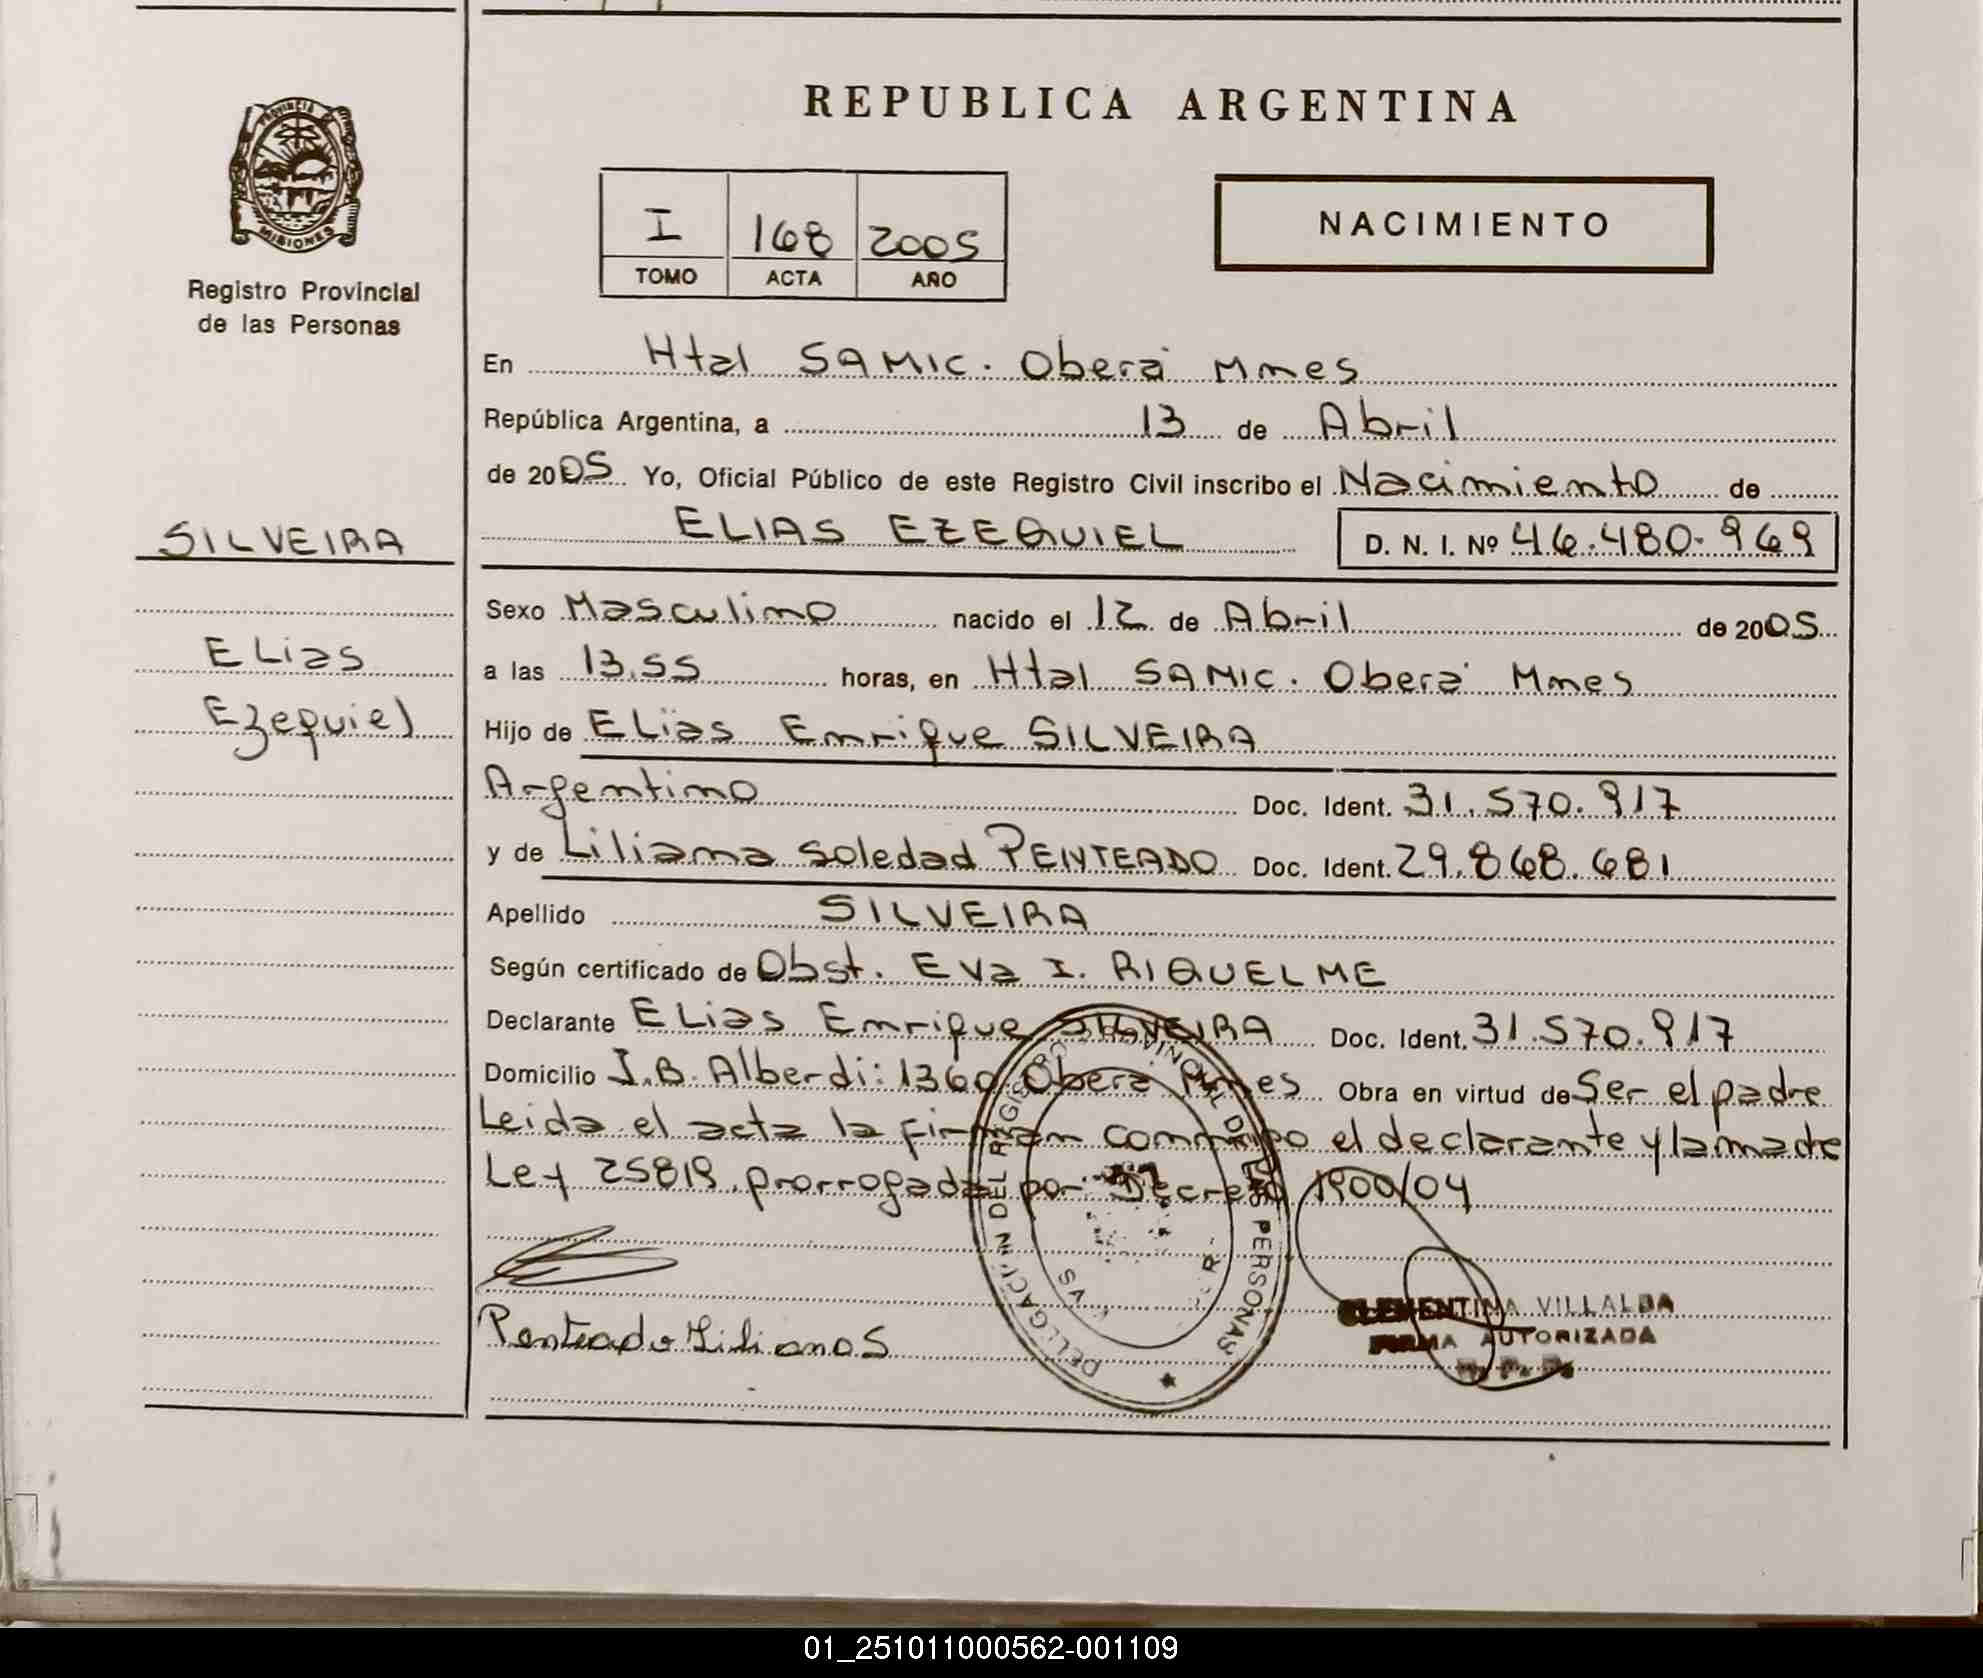 REPUBLICA ARGENTINA
PROVINCIA
MISIONES
Registro Provincial
de las Personas
I 168 2005
TOMO ACTA AÑO
NACIMIENTO
En Htal SAMIC. Oberá Mnes
República Argentina, a 13 de Abril
de 2005 Yo, Oficial Público de este Registro Civil inscribo el Nacimiento de
ELIAS EZEQUIEL D. N. I. Nº 46.480.969
SILVEIRA
Elias
Ezequiel
Sexo Masculino nacido el 12 de Abril de 2005
a las 13.55 horas, en Htal SAMIC. Oberá Mnes
Hijo de Elias Enrique SILVEIRA
Argentino Doc. Ident. 31.570.917
y de Liliana Soledad PENTEADO Doc. Ident. 29.868.681
Apellido SILVEIRA
Según certificado de Obst. Eva I. RIQUELME
Declarante Elias Enrique SILVEIRA Doc. Ident. 31.570.917
Domicilio J.B. Alberdi: 1360 Oberá Mnes Obra en virtud de Ser el padre
Leida el acta la firman conmigo el declarante y la madre
Ley 25819 prorrogada por Decreto 1900/04
Penteado Liliana S
DEL REGISTRO PROVINCIAL DE LAS PERSONAS
CLEMENTINA VILLALBA
FIRMA AUTORIZADA
01_251011000562-001109